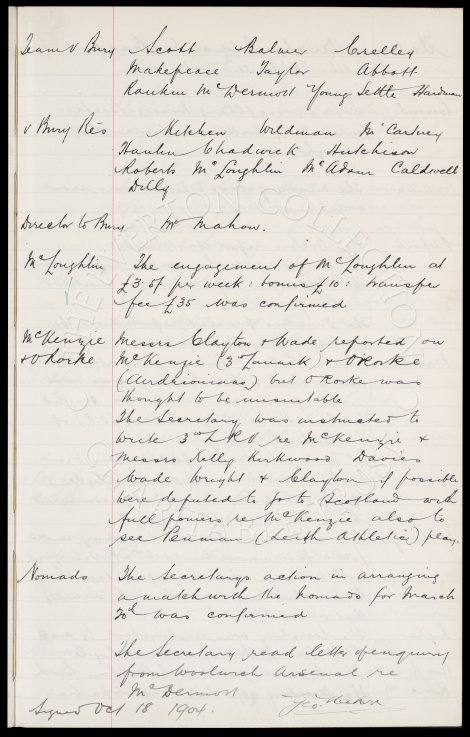 Team v Bury Scott Balmer Crelley
Makepeace Taylor Abbott
Rankin McDermott Young Settle Hardman
v Bury Res Kitchen Wildman McCartney
Chadwick Hutchison
Roberts McLoughlin McAdam Caldwell
Dilly
Director to Bury Mr Mahon.
McLoughlin The engagement of McLoughlin at
£3.5/- per week: bonus £10: transfer
fee £35 was confirmed
McKenzie Messrs Clayton & Wade reported on
& O'Rorke McKenzie (3rd Lanark) & O'Rorke
(Airdrieonians) but O'Rorke was
thought to be unsuitable
The Secretary was instructed to
write 3rd L.R.V re McKenzie &
Messrs Kelly Kirkwood Davies
Wade Wright & Clayton if possible
were deputed to go to Scotland with
full powers re McKenzie also to
see Penman (Leith Athletic) play.
Nomads The Secretarys action in arranging
a match with the Nomads for March
was confirmed
The Secretary read letter of enquiry
from Woolwich Arsenal re
McDermott
Signed Oct 18 1904. Geo. Mahon
THE EVERTON COLLECTION